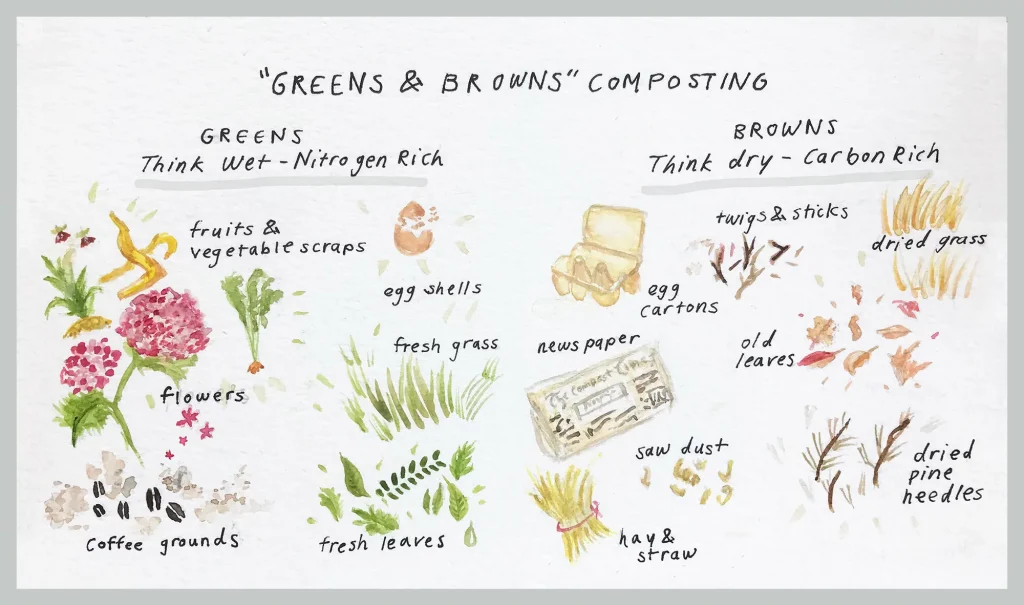 "GREENS & BROWNS" COMPOSTING
GREENS
Think Wet - Nitrogen Rich
fruits &
vegetable scraps
egg shells
fresh grass
flowers
coffee grounds
fresh leaves
BROWNS
Think dry - Carbon Rich
twigs & sticks
dried grass
egg
cartons
newspaper
old
leaves
The Compost Times
saw dust
dried
pine
needles
hay &
straw